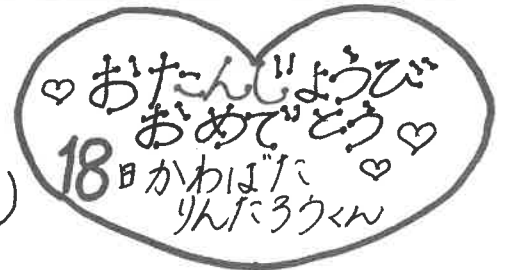 おたんじょうび
おめでとう
18日かわばた
りんたろうくん